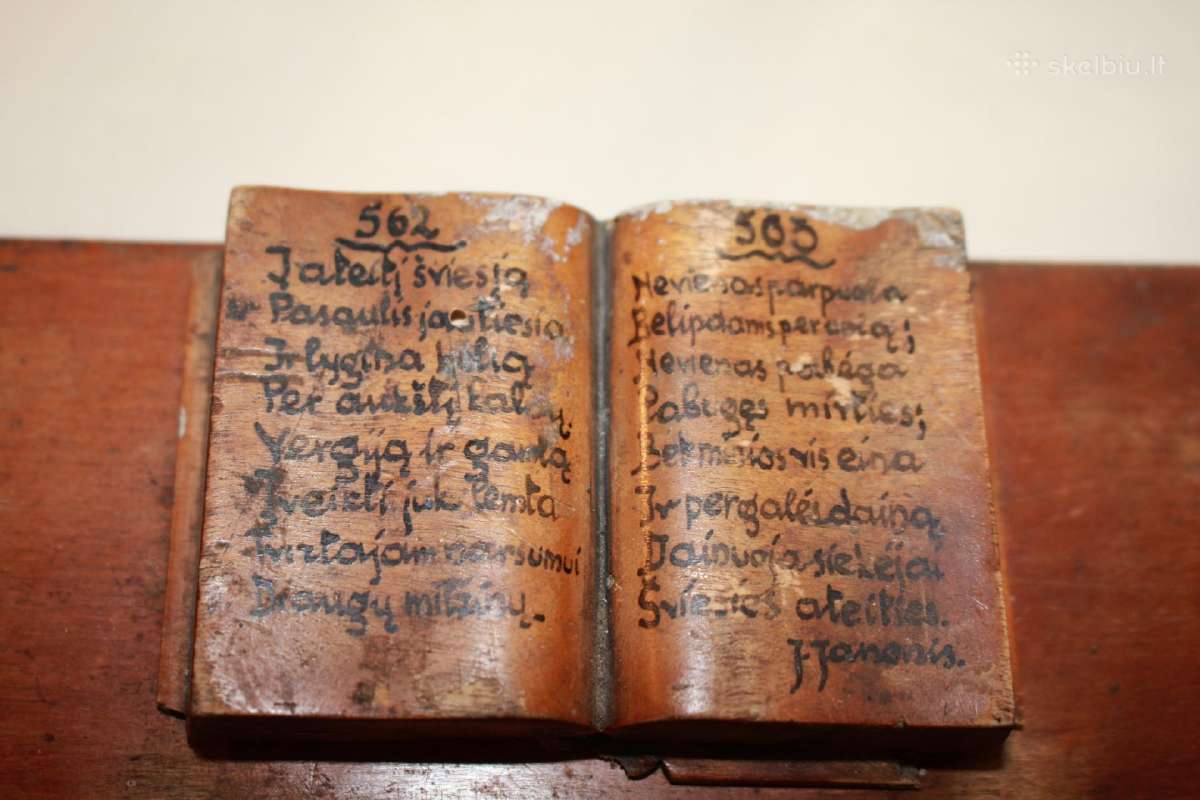 562
Į ateitį šviesią
Pasaulis jau tiesia
Ir lygina kelią
Per aukštį kalnų,
Vergiją ir
Įveikti juk lemta
Tvirtajam narsumui
Draugų milžinų.
563
Nevienas parpuola
Belipdams per uolą;
Nevienas pabėga
Pabūgęs mirties;
Bet minios vis eina
Ir pergalės dainą
Dainuoja siekėja
Šviesios ateities.
J. Janonis.
skelbiu.lt